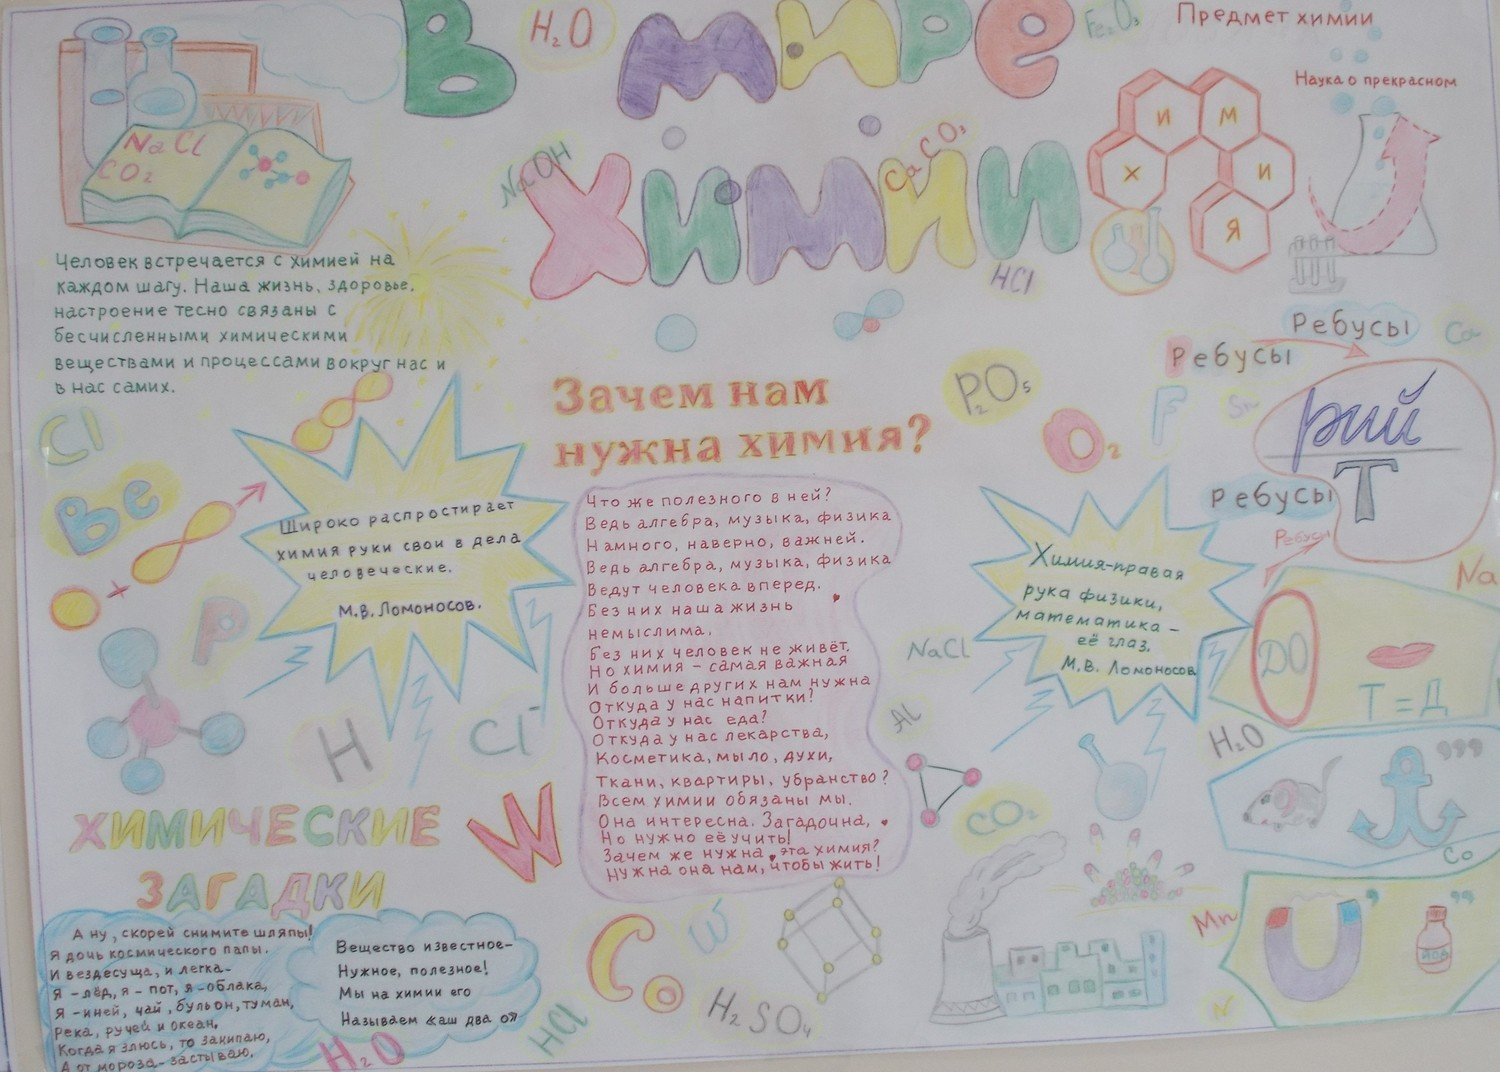 В мире
химии
H₂O
Fe₂O₃
NaOH
CaCO₃
HCl
Предмет химии
Наука о прекрасном
Х И М И Я
NaCl
CO₂
Человек встречается с химией на
каждом шагу. Наша жизнь, здоровье,
настроение тесно связаны с
бесчисленными химическими
веществами и процессами вокруг нас и
в нас самих.
Cl
Be
P
H
Cl⁻
W
Широко распростирает
химия руки свои в дела
человеческие.
М.В. Ломоносов.
Зачем нам
нужна химия?
Что же полезного в ней?
Ведь алгебра, музыка, физика
Намного, наверно, важней.
Ведь алгебра, музыка, физика
Ведут человека вперед.
Без них наша жизнь
немыслима,
Без них человек не живёт.
Но химия – самая важная
И больше других нам нужна
Откуда у нас напитки?
Откуда у нас еда?
Откуда у нас лекарства,
Косметика, мыло, духи,
Ткани, квартиры, убранство?
Всем химии обязаны мы.
Она интересна. Загадочна,
Но нужно её учить!
Зачем же нужна эта химия?
Нужна она нам, чтобы жить!
P₂O₅
O₂
F
Sn
Ca
Ребусы
Ребусы
Ребусы
Ребусы
рий
Т
Na
Химия-правая
рука физики,
математика –
её глаз.
М.В. Ломоносов
NaCl
Al
CO₂
ДО
Т = Д
H₂O
,,,
Co
Mn
,
,,
йод
N
ХИМИЧЕСКИЕ
ЗАГАДКИ
А ну, скорей снимите шляпы!
Я дочь космического папы.
И вездесуща, и легка-
Я -лёд, я - пот, я -облака,
Я -иней, чай, бульон, туман,
Река, ручей и океан.
Когда я злюсь, то закипаю,
А от мороза- застываю.
Вещество известное–
Нужное, полезное!
Мы на химии его
Называем «аш два о»
H₂O
HCl
Co
W
H₂SO₄